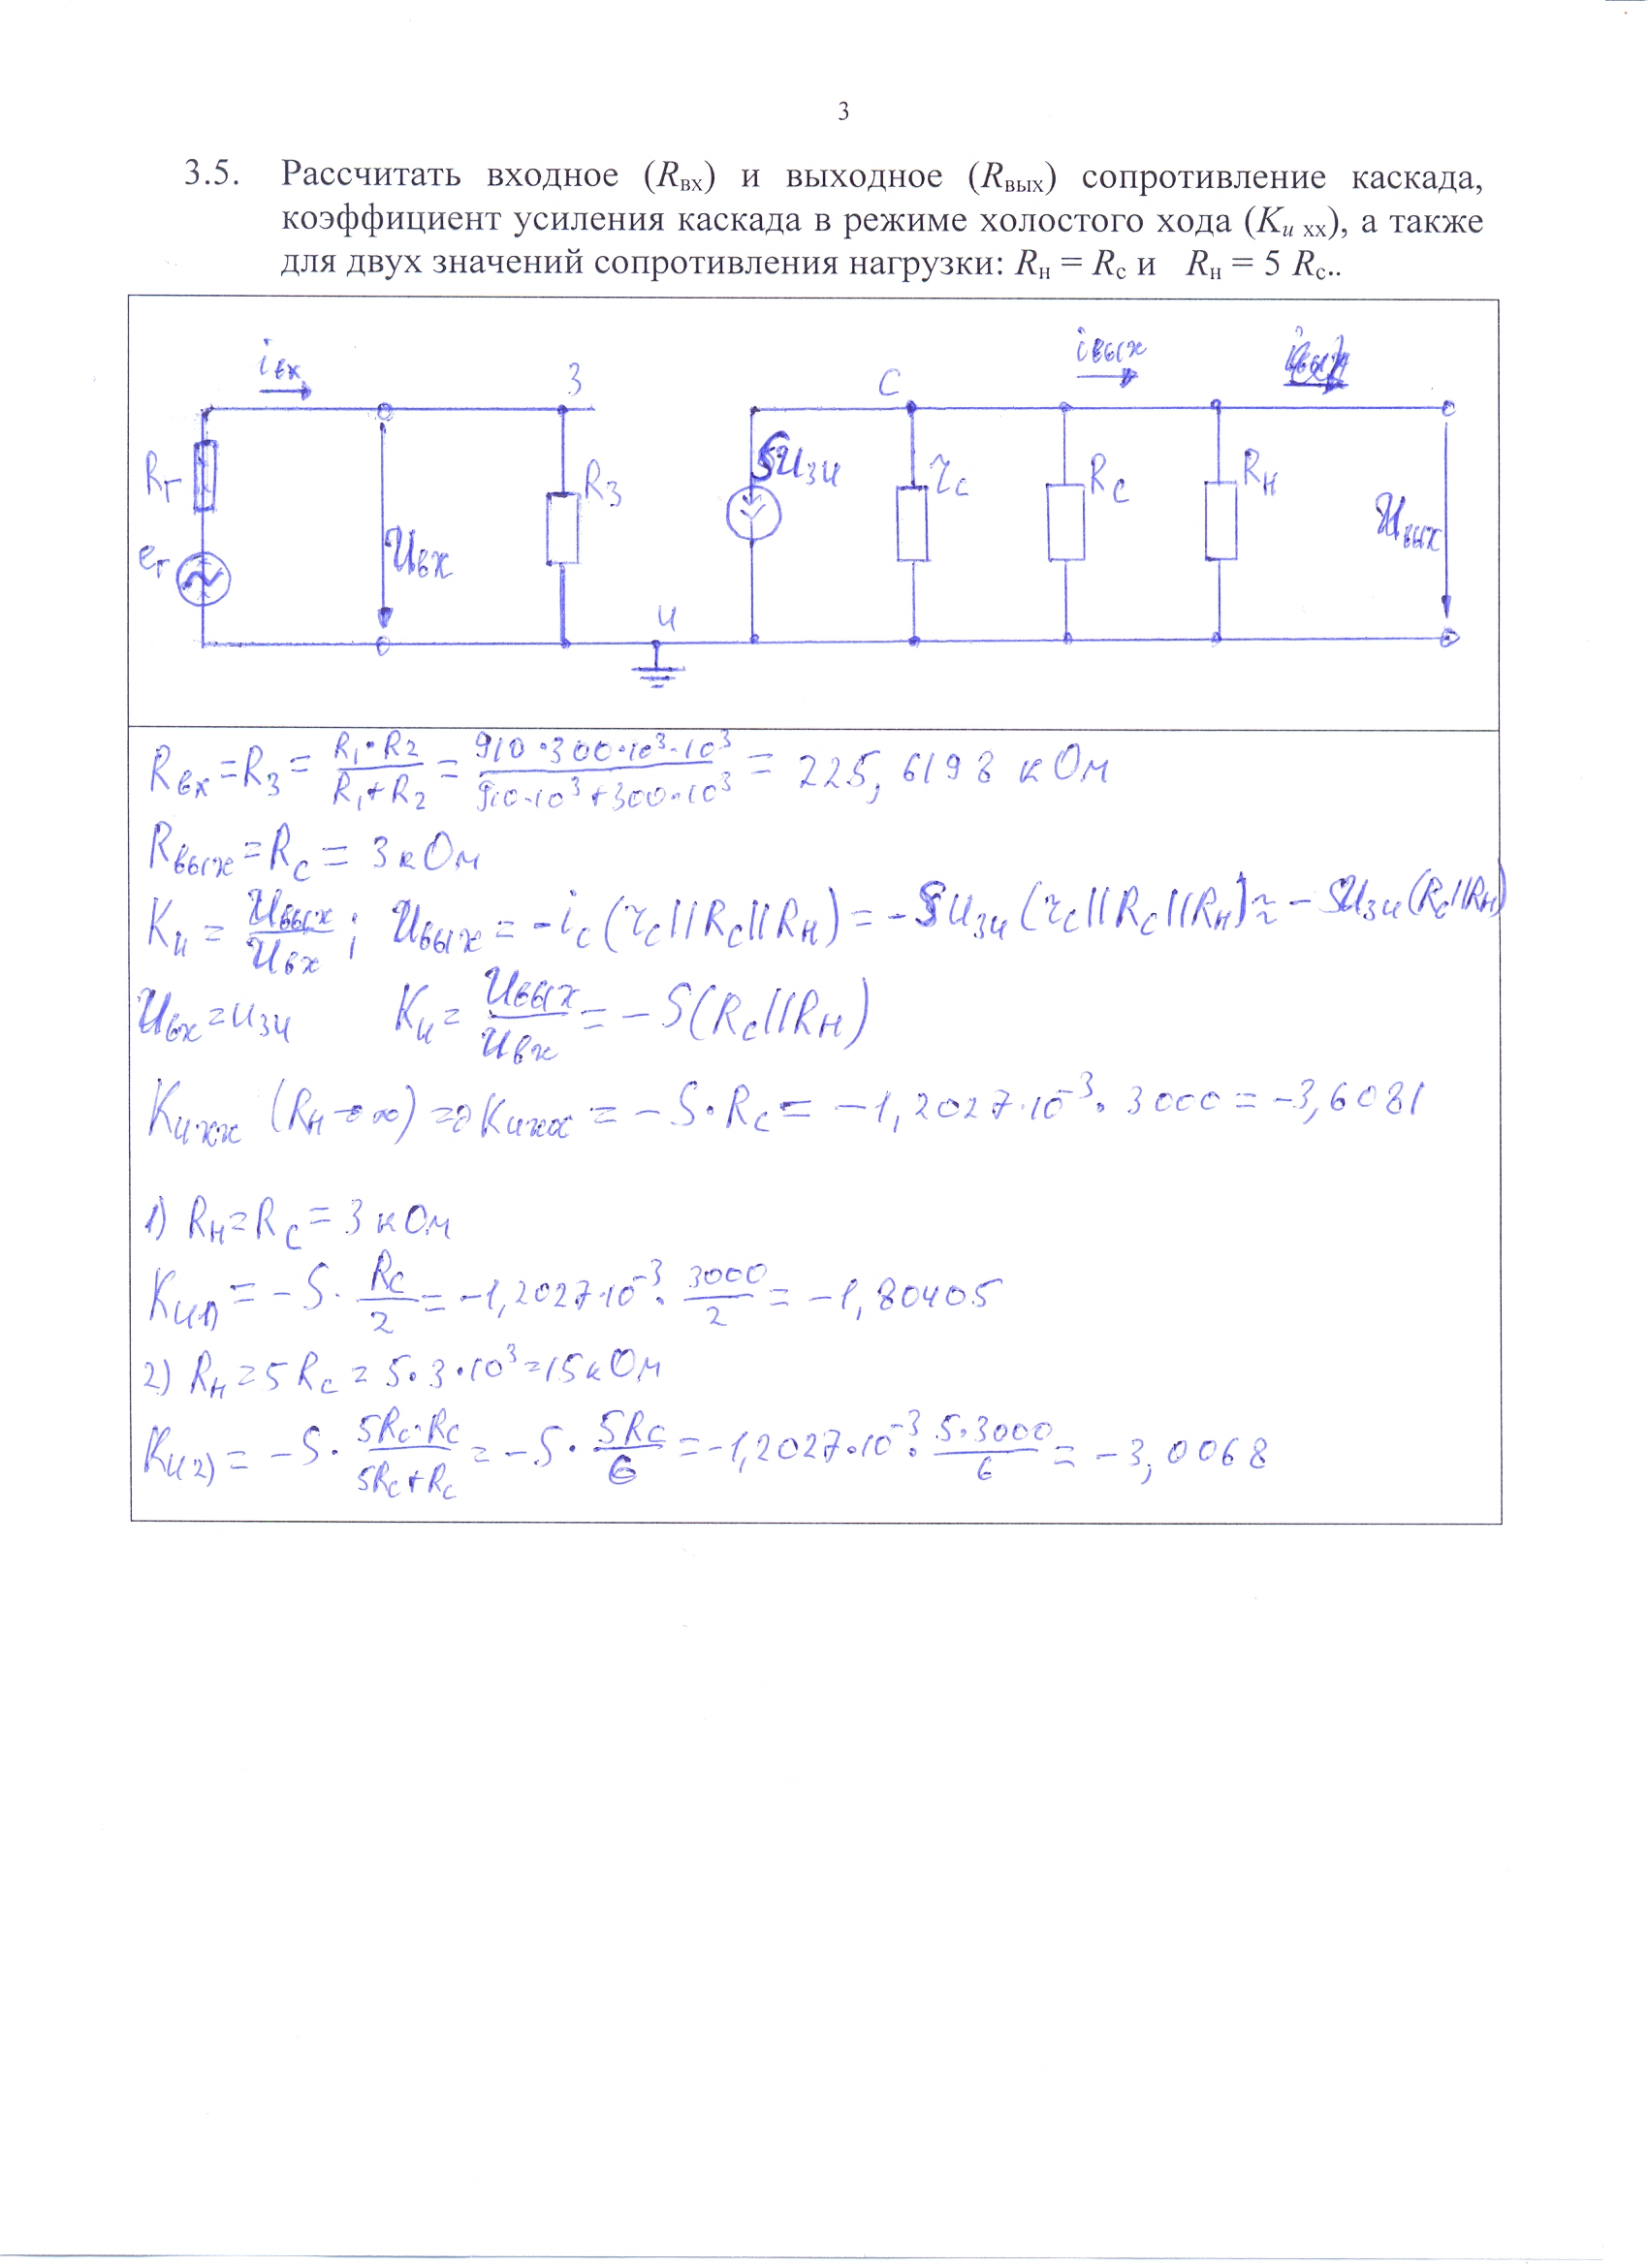 3
3.5. Рассчитать входное (Rвх) и выходное (Rвых) сопротивление каскада,
коэффициент усиления каскада в режиме холостого хода (Ku хх), а также
для двух значений сопротивления нагрузки: Rн = Rс и Rн = 5 Rс..
iвх З С iвых
Rг Uвх Rз SUзи rс Rс Rн Uвых
eг
И
Rвх = Rз = R1·R2 / R1+R2 = 910·300·10³·10³ / 910·10³+300·10³ = 225,6198 кОм
Rвых = Rс = 3 кОм
Kи = Uвых / Uвх ; Uвых = -iс(rс||Rс||Rн) = -SUзи(rс||Rс||Rн) ≈ -SUзи(Rс||Rн)
Uвх = Uзи Kи = Uвых / Uвх = -S(Rс||Rн)
Kихх (Rн→∞) => Kихх = -S·Rс = -1,2027·10⁻³·3000 = -3,6081
1) Rн = Rс = 3 кОм
Kи1) = -S·Rс/2 = -1,2027·10⁻³·3000/2 = -1,80405
2) Rн = 5Rс = 5·3·10³ = 15 кОм
Kи2) = -S·5Rс·Rс / 5Rс+Rс = -S·5Rс/6 = -1,2027·10⁻³·5·3000/6 = -3,0068